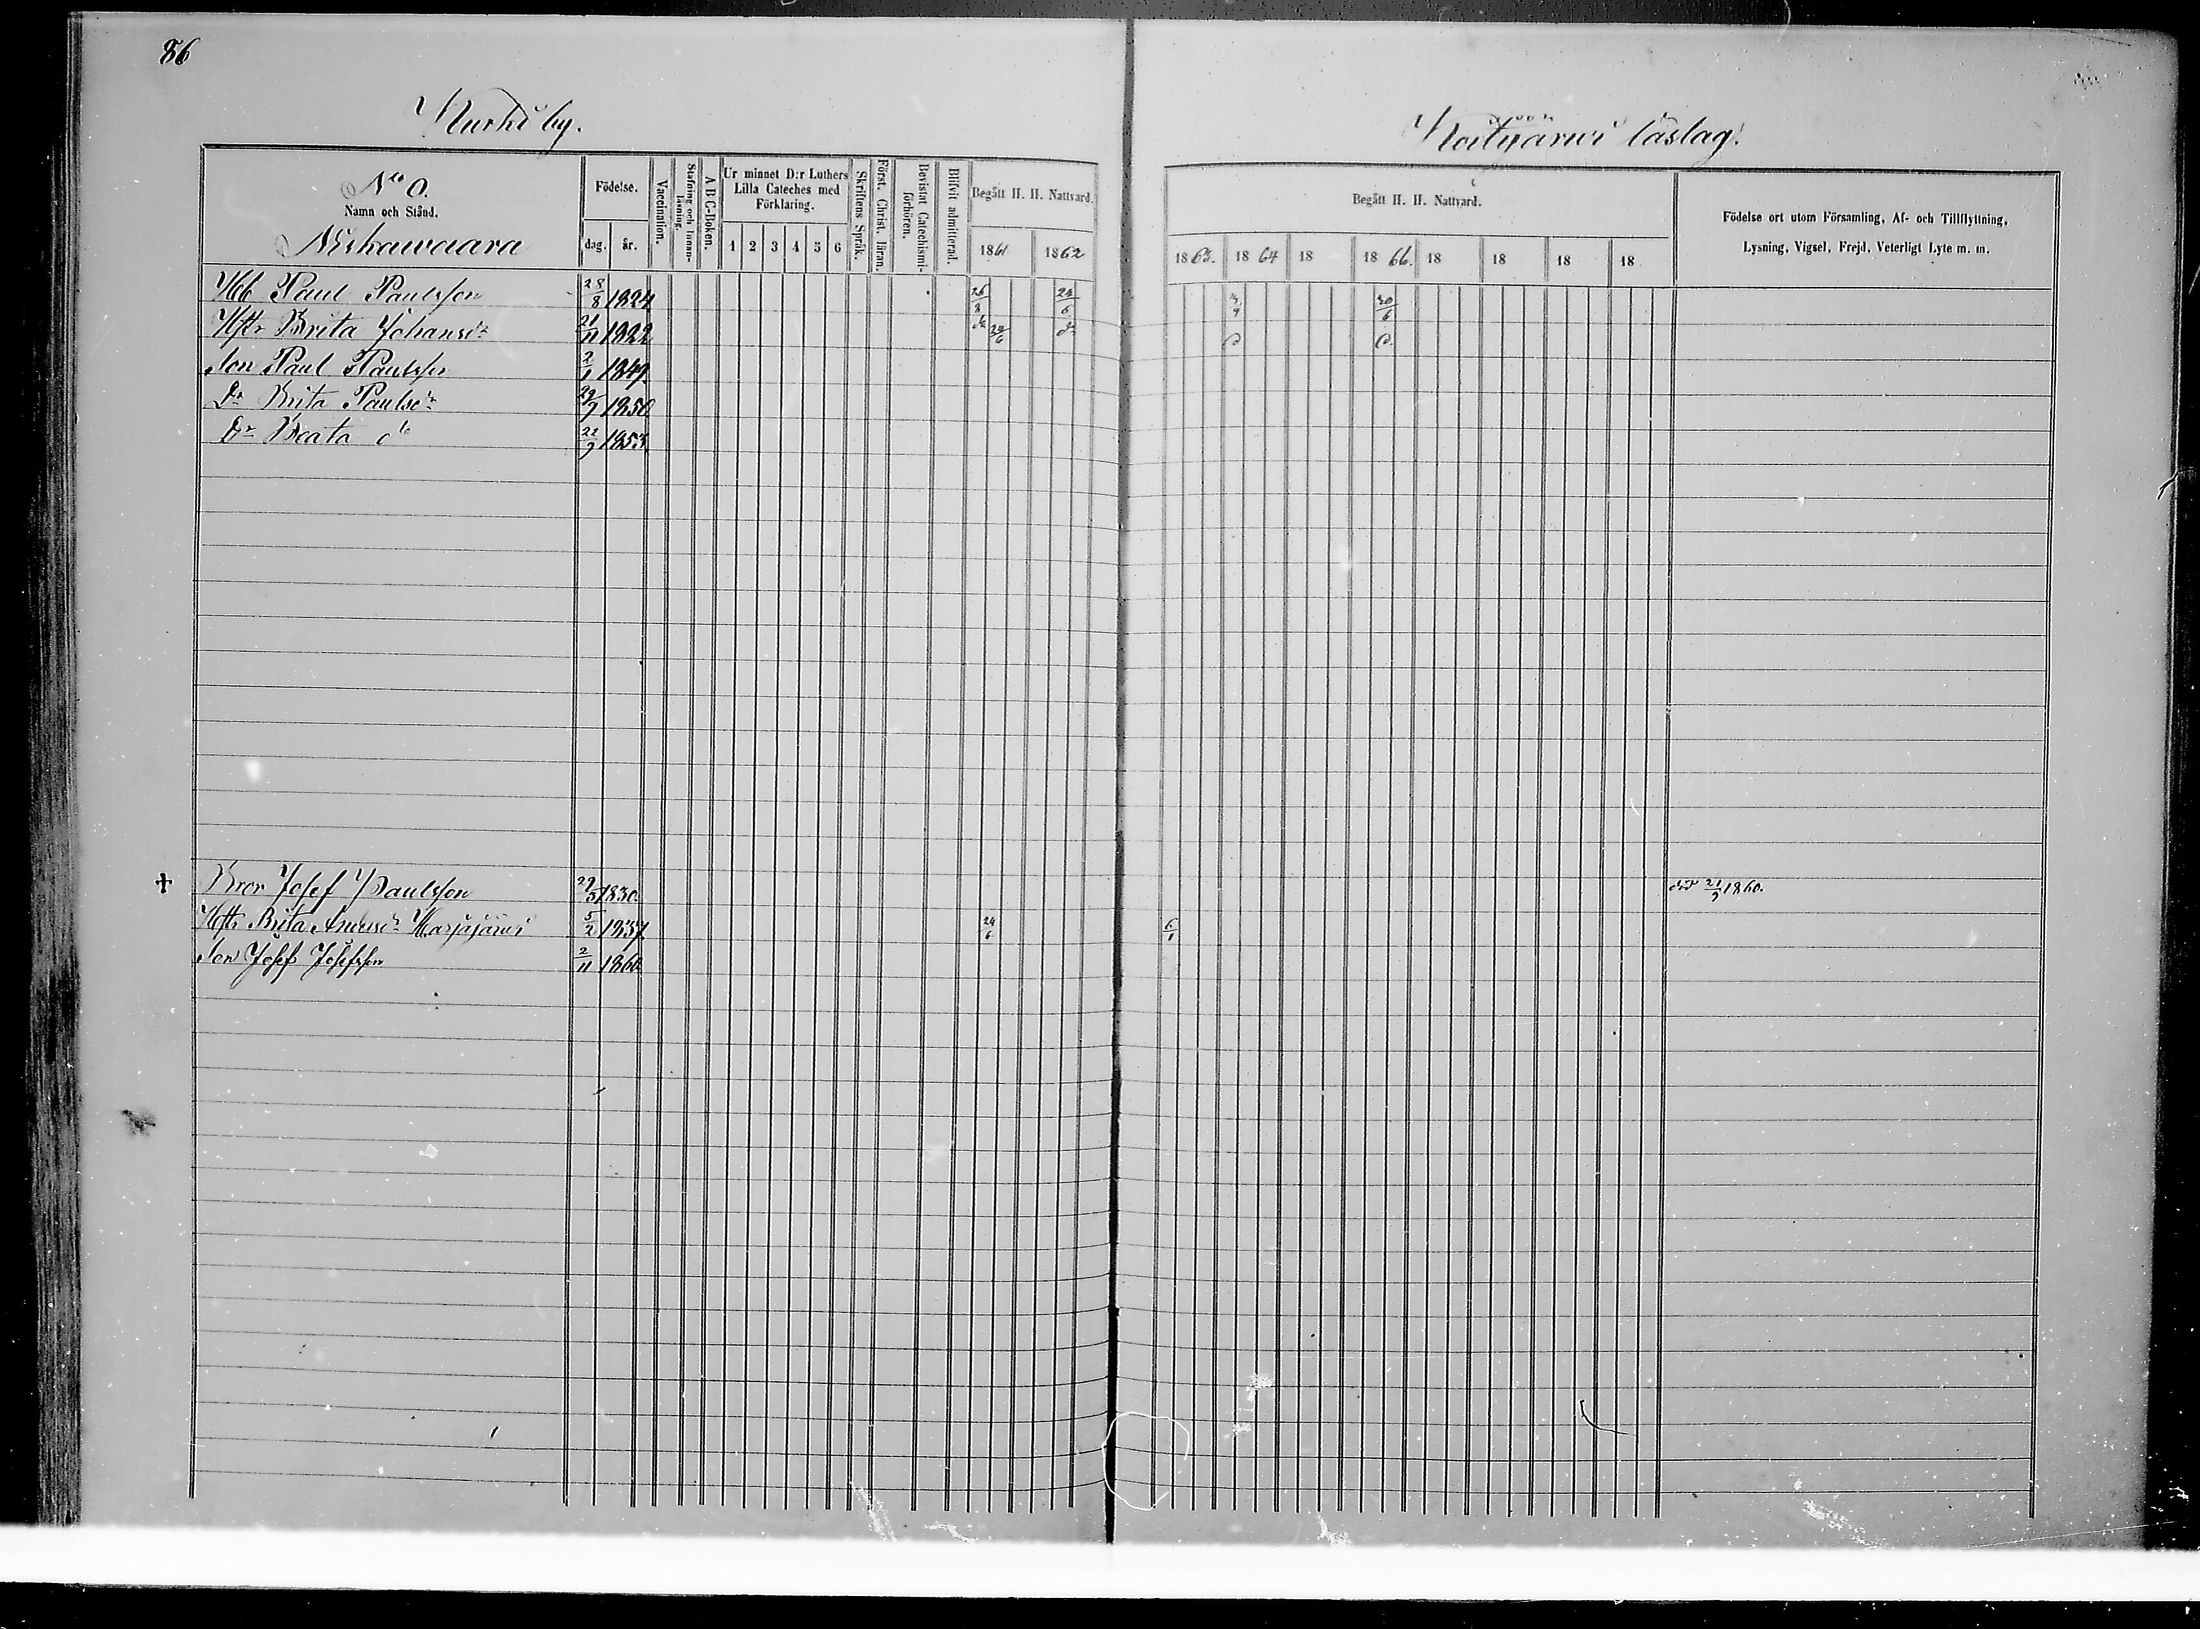 86
by.
läslag.
No 0.
Namn och Stånd.
Niskawaara
Födelse.
dag. år.
Vaccination.
Stafning och Innan-läsning.
A B C-Boken.
Ur minnet D:r Luthers
Lilla Cateches med
Förklaring.
1 2 3 4 5 6
Skriftens Språk.
Först. Christ. läran.
Bevistat Catechismi-förhören.
Blifvit admitterad.
Begått H. H. Nattvard.
1861 1862
Begått H. H. Nattvard.
1863. 1864 18 1866. 18 18 18 18
Födelse ort utom Församling, Af- och Tillflyttning,
Lysning, Vigsel, Frejd, Veterligt Lyte m. m.
Paul Paulsson 28/8 1824 26/8 24/6 30/6
Hstr Brita Johansdr 21/11 1822 24/6
Son Paul Paulsson 2/1 1849.
Dr Brita Paulsdr 1850
Dr Beata do 1853.
Bror Josef Paulsson 1830. död 1860.
Hstr Brita Andersdr 5/2 1837 24/6 6/1
Son Josef Josefsson 2/11 1860